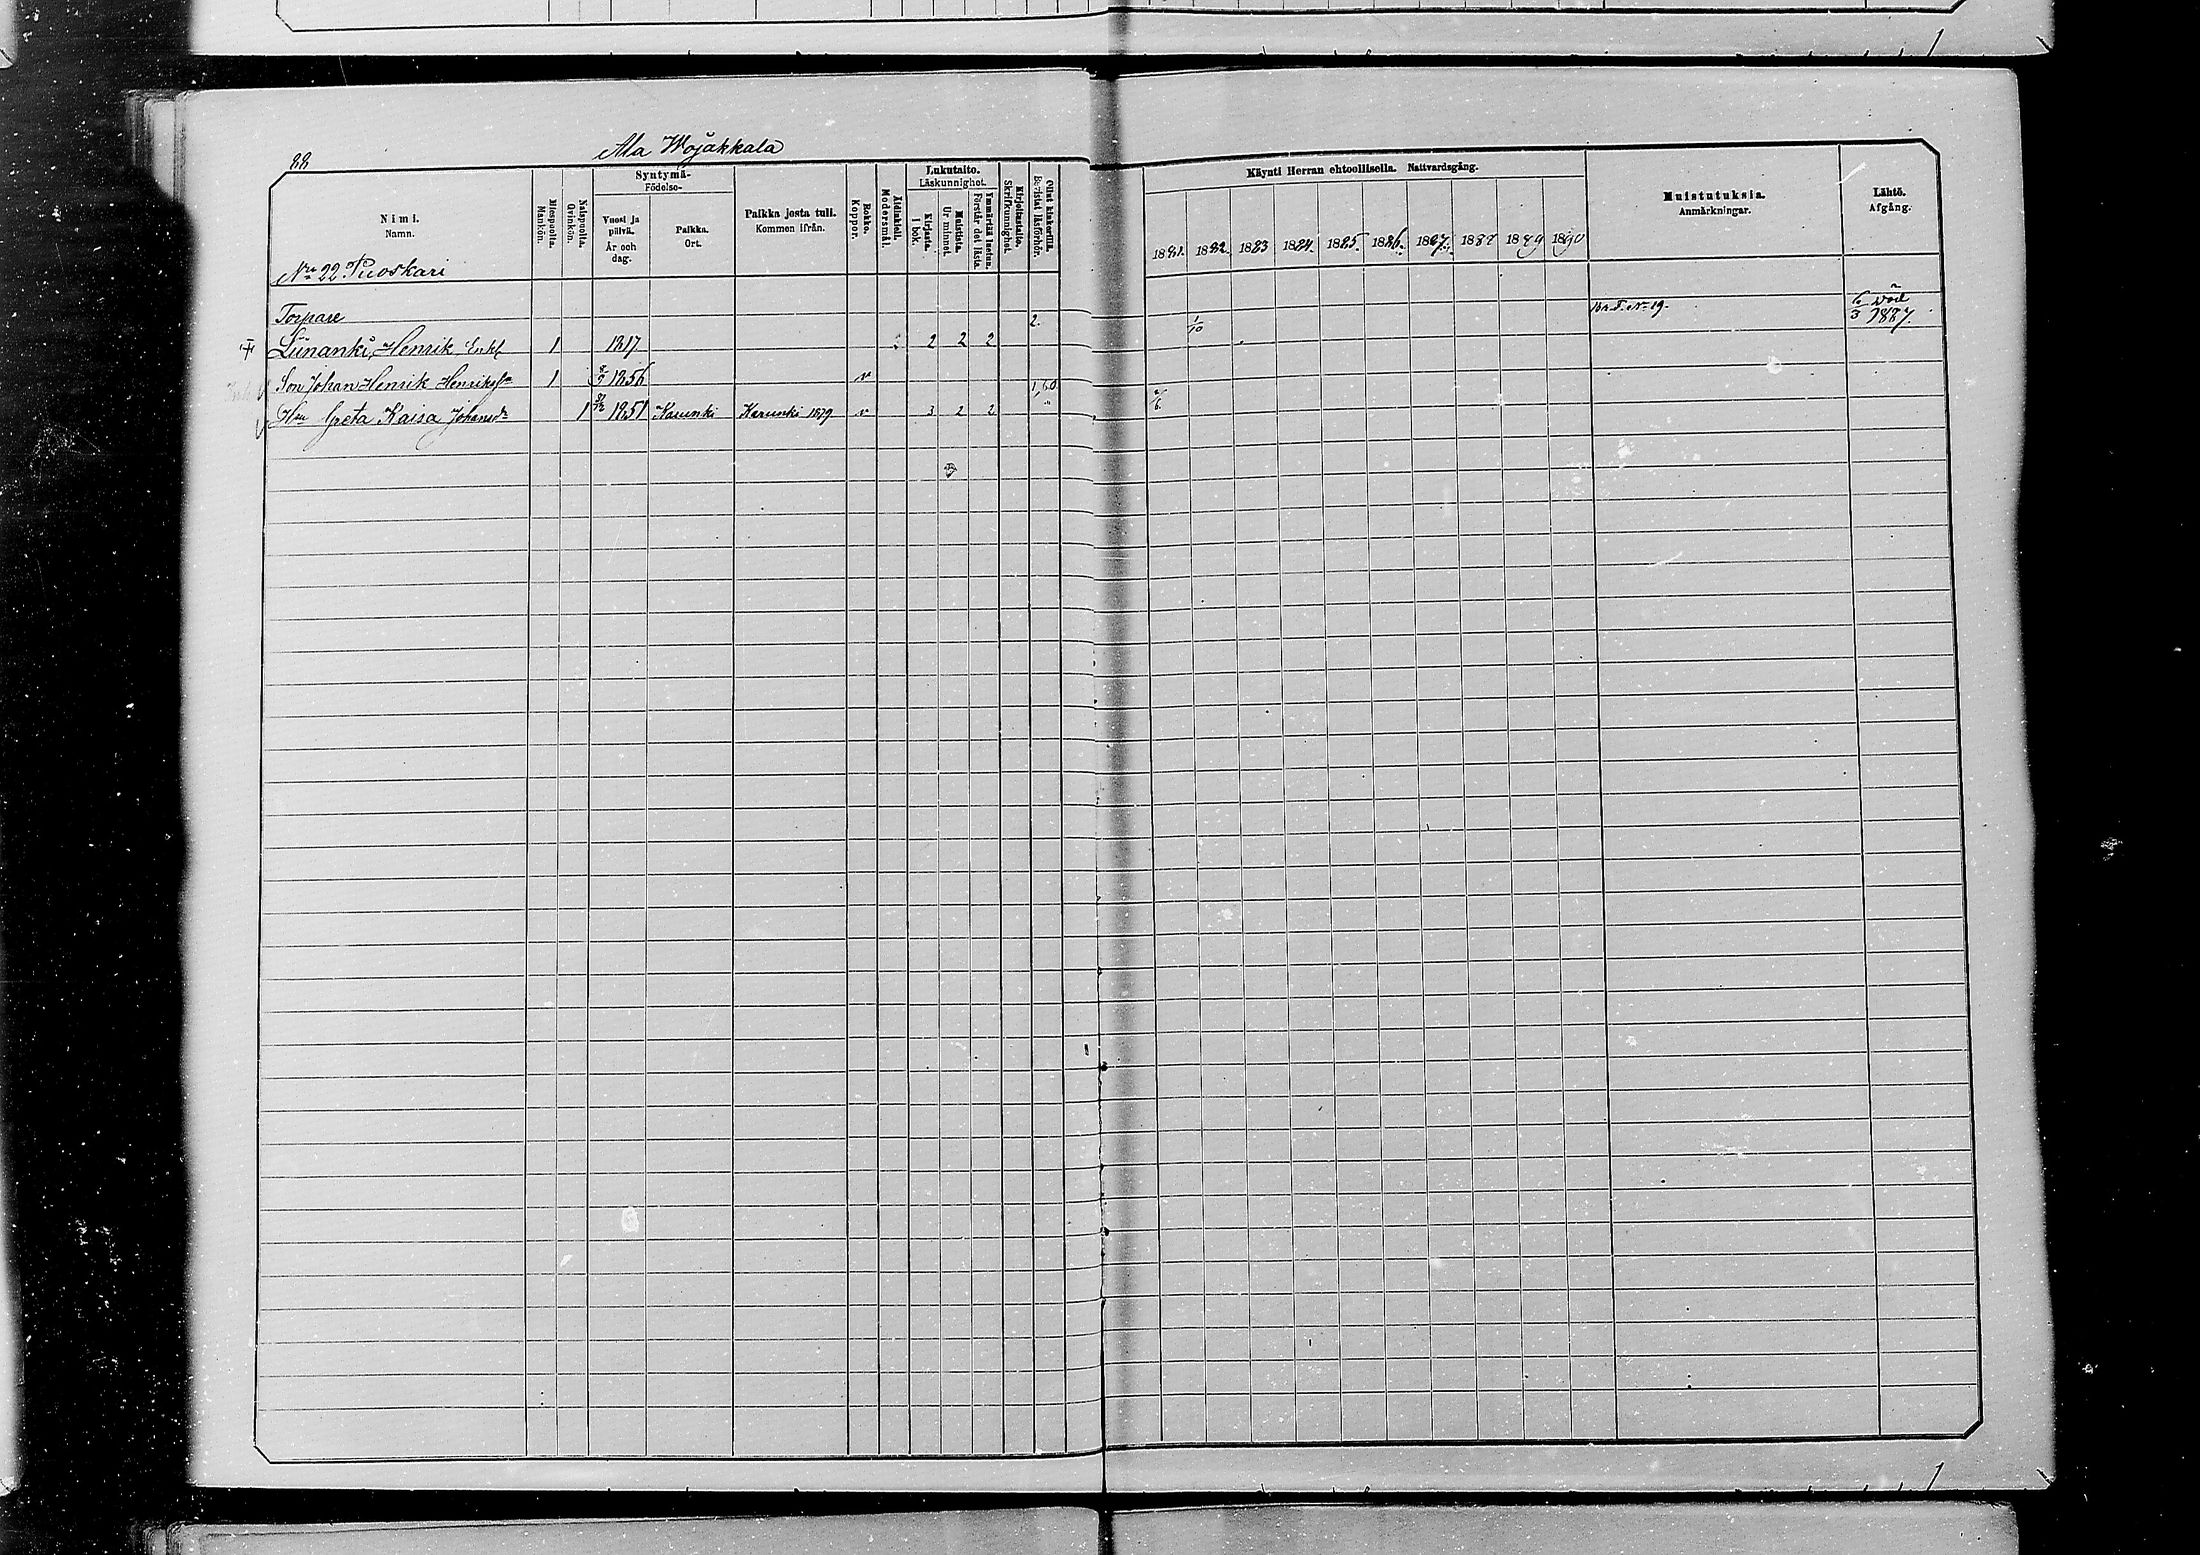 88
Ala Wojakkala
Nimi. Namn.
Miespuolta. Mankön.
Naispuolta. Qvinkön.
Syntymä- Födelse-
Vuosi ja päivä. År och dag.
Paikka. Ort.
Paikka josta tuli. Kommen ifrån.
Rokko. Koppor.
Äidinkieli. Modersmål.
Lukutaito. Läskunnighet.
Kirjasta. I bok.
Muistista. Ur minnet.
Ymmärtää luetun. Förstår det lästa.
Kirjoitustaito. Skrifkunnighet.
Ollut kinkerillä. Bevistat läsförhör.
Käynti Herran ehtoollisella. Nattvardsgång.
1881. 1882. 1883 1884. 1885. 1886. 1887. 1888 1889 1890
Muistutuksia. Anmärkningar.
Lähtö. Afgång.
No 22 Puoskari
Torpare 2. 1/10 6/3 1887.
Liinanki, Henrik Enkl 1 1817 2 2 2
Son Johan Henrik Henriksson 1 1856 v
Hu Greta Kaisa Johansdr 1 1851 Karunki Karunki 1879 v 3 2 2